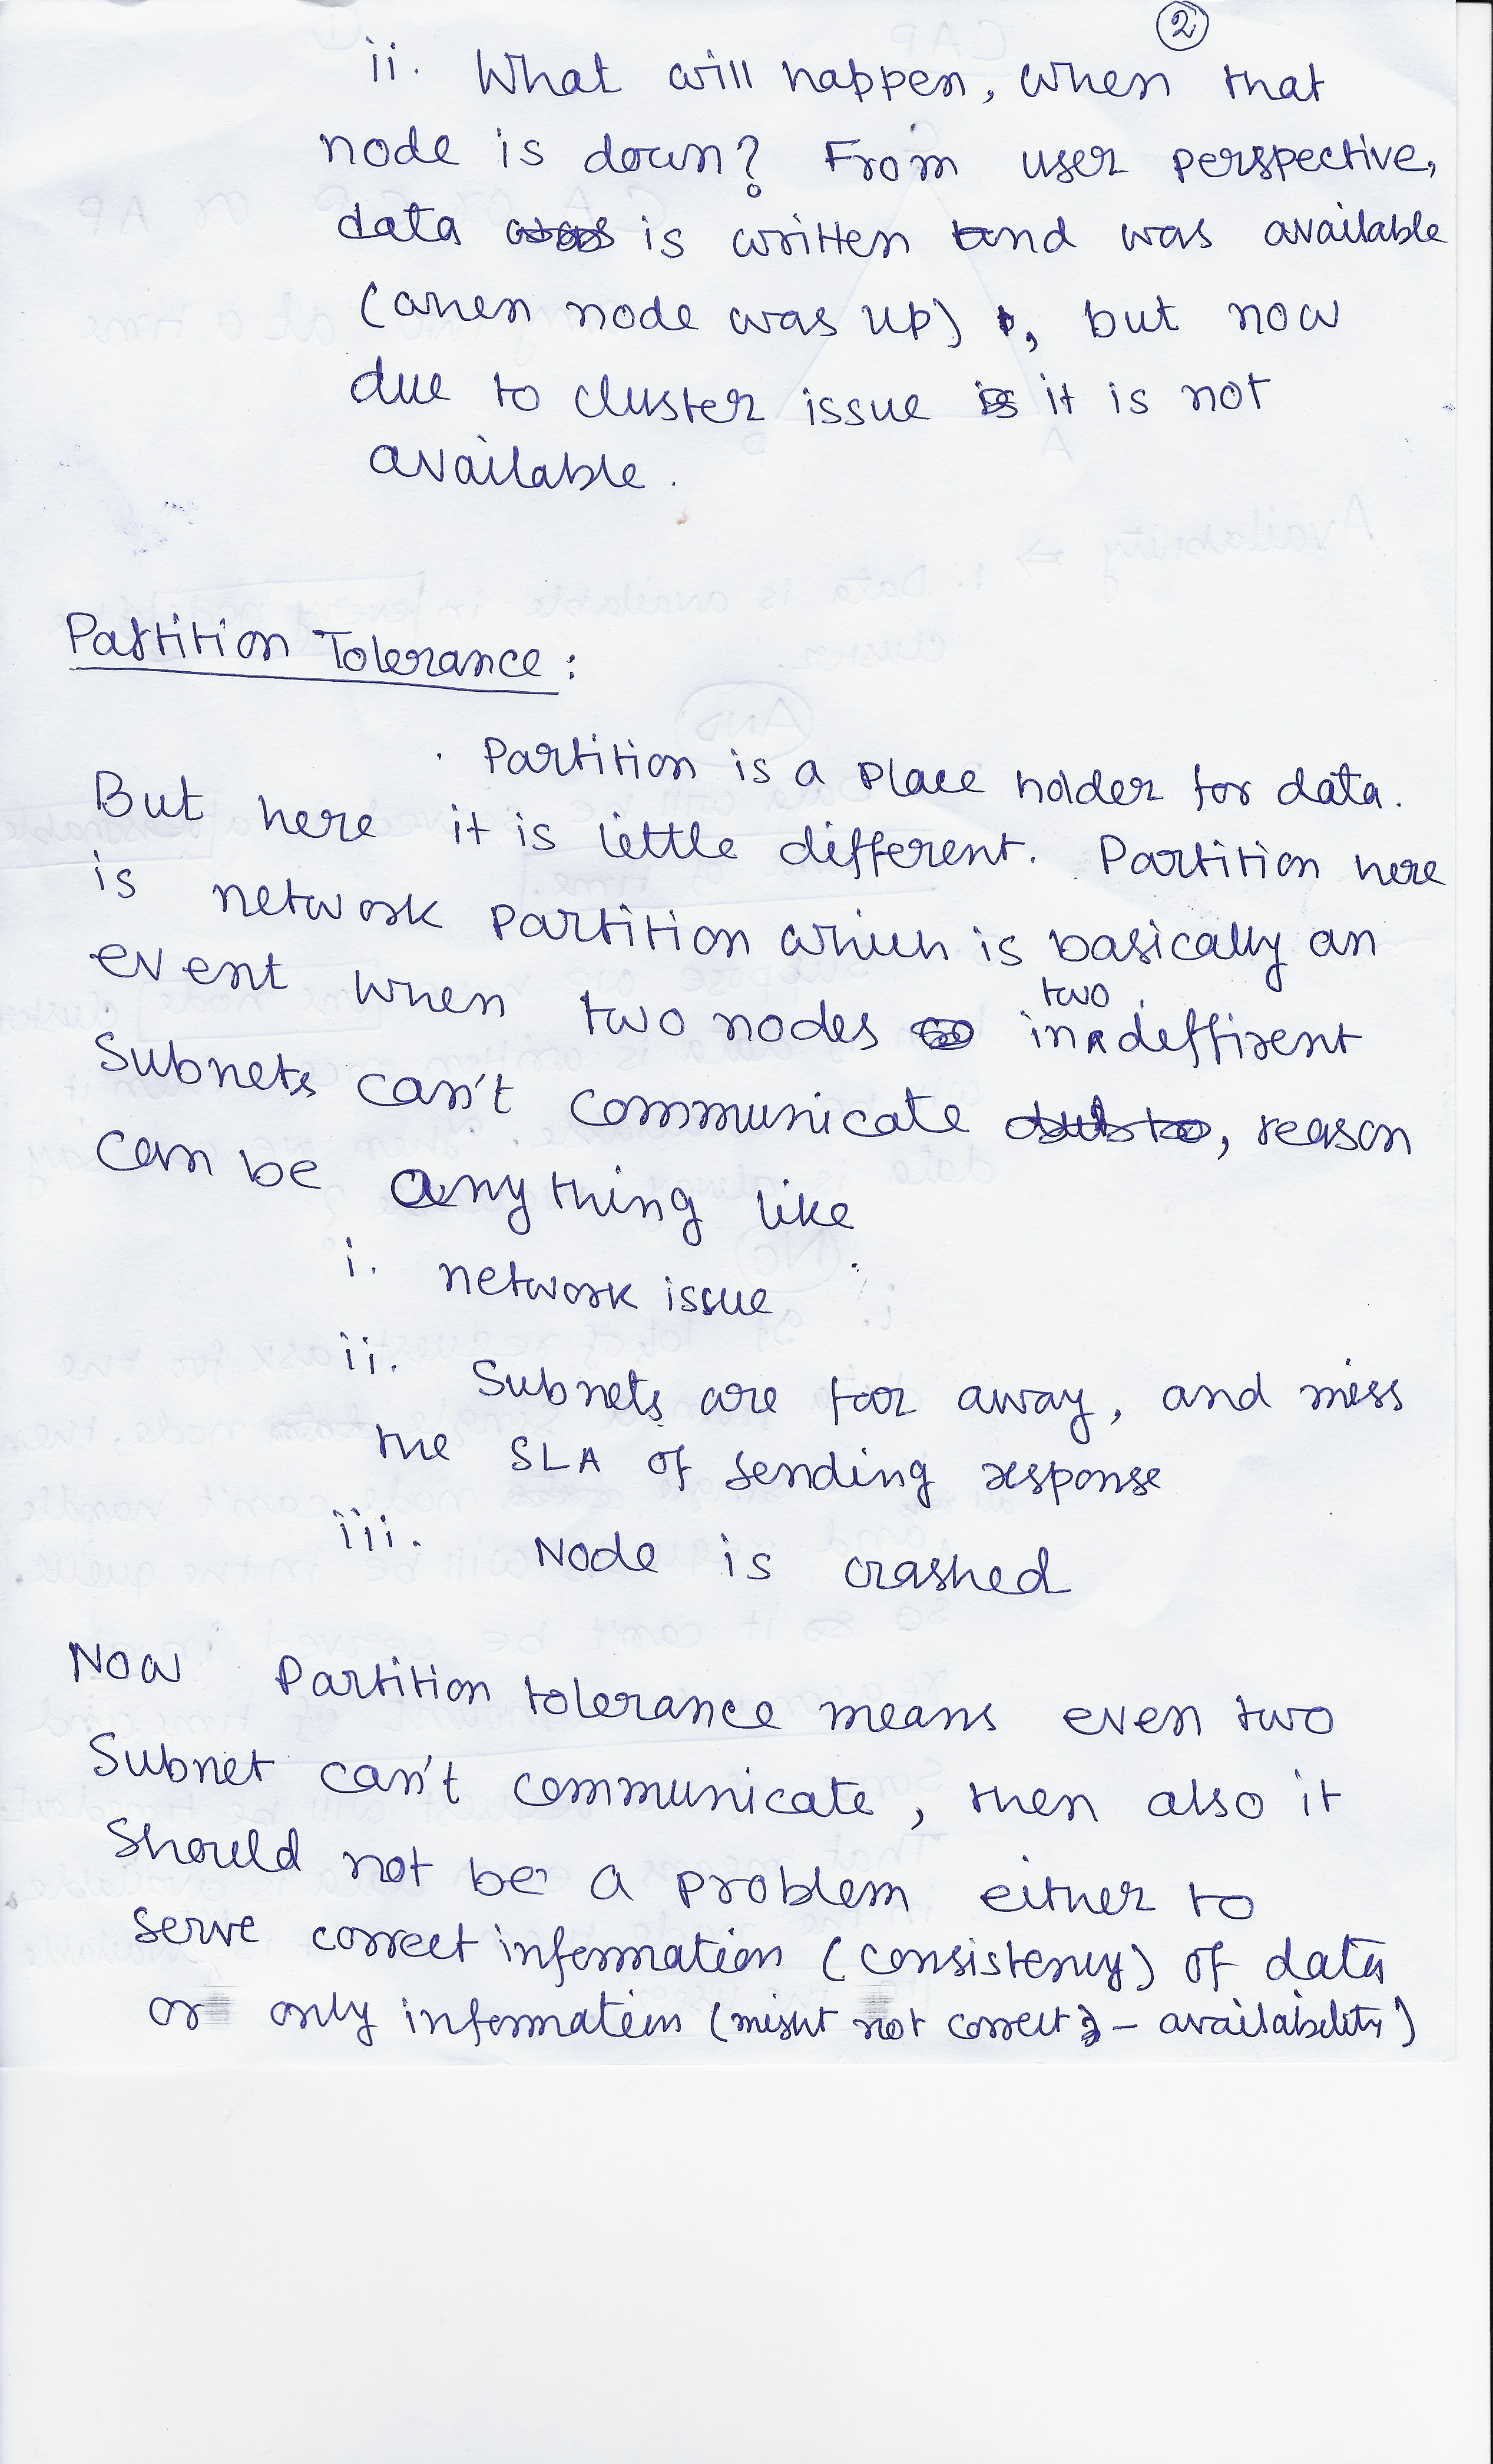 2
ii. What will happen, when that
node is down? From user perspective,
data is written and was available
(when node was up), but now
due to cluster issue it is not
available.
Partition Tolerance:
Partition is a place holder for data.
But here it is little different. Partition here
is network partition which is basically an
event when two nodes in two deffirent
Subnets can't communicate, reason
can be anything like
i. network issue
ii. Subnets are far away, and miss
the SLA of sending response
iii. Node is crashed
Now Partition tolerance means even two
Subnet can't communicate, then also it
should not be a problem either to
serve correct information (consistency) of data
or only information (might not correct - availability)